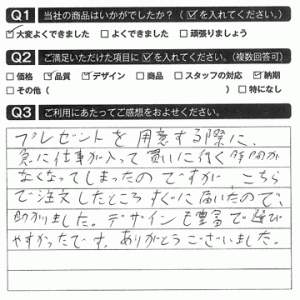 Q1 当社の商品はいかがでしたか?(☑を入れてください。)
☑大変よくできました □よくできました □頑張りましょう
Q2 ご満足いただけた項目に☑を入れてください。(複数回答可)
□価格 ☑品質 ☑デザイン □商品 □スタッフの対応 ☑納期
□その他( ) □特になし
Q3 ご利用にあたってご感想をおよせください。
プレゼントを用意する際に、
急に仕事が入って買いに行く時間が
なくなってしまったのですが、こちら
で注文したところすぐに届いたので、
助かりました。デザインも豊富で選び
やすかったです。ありがとうございました。